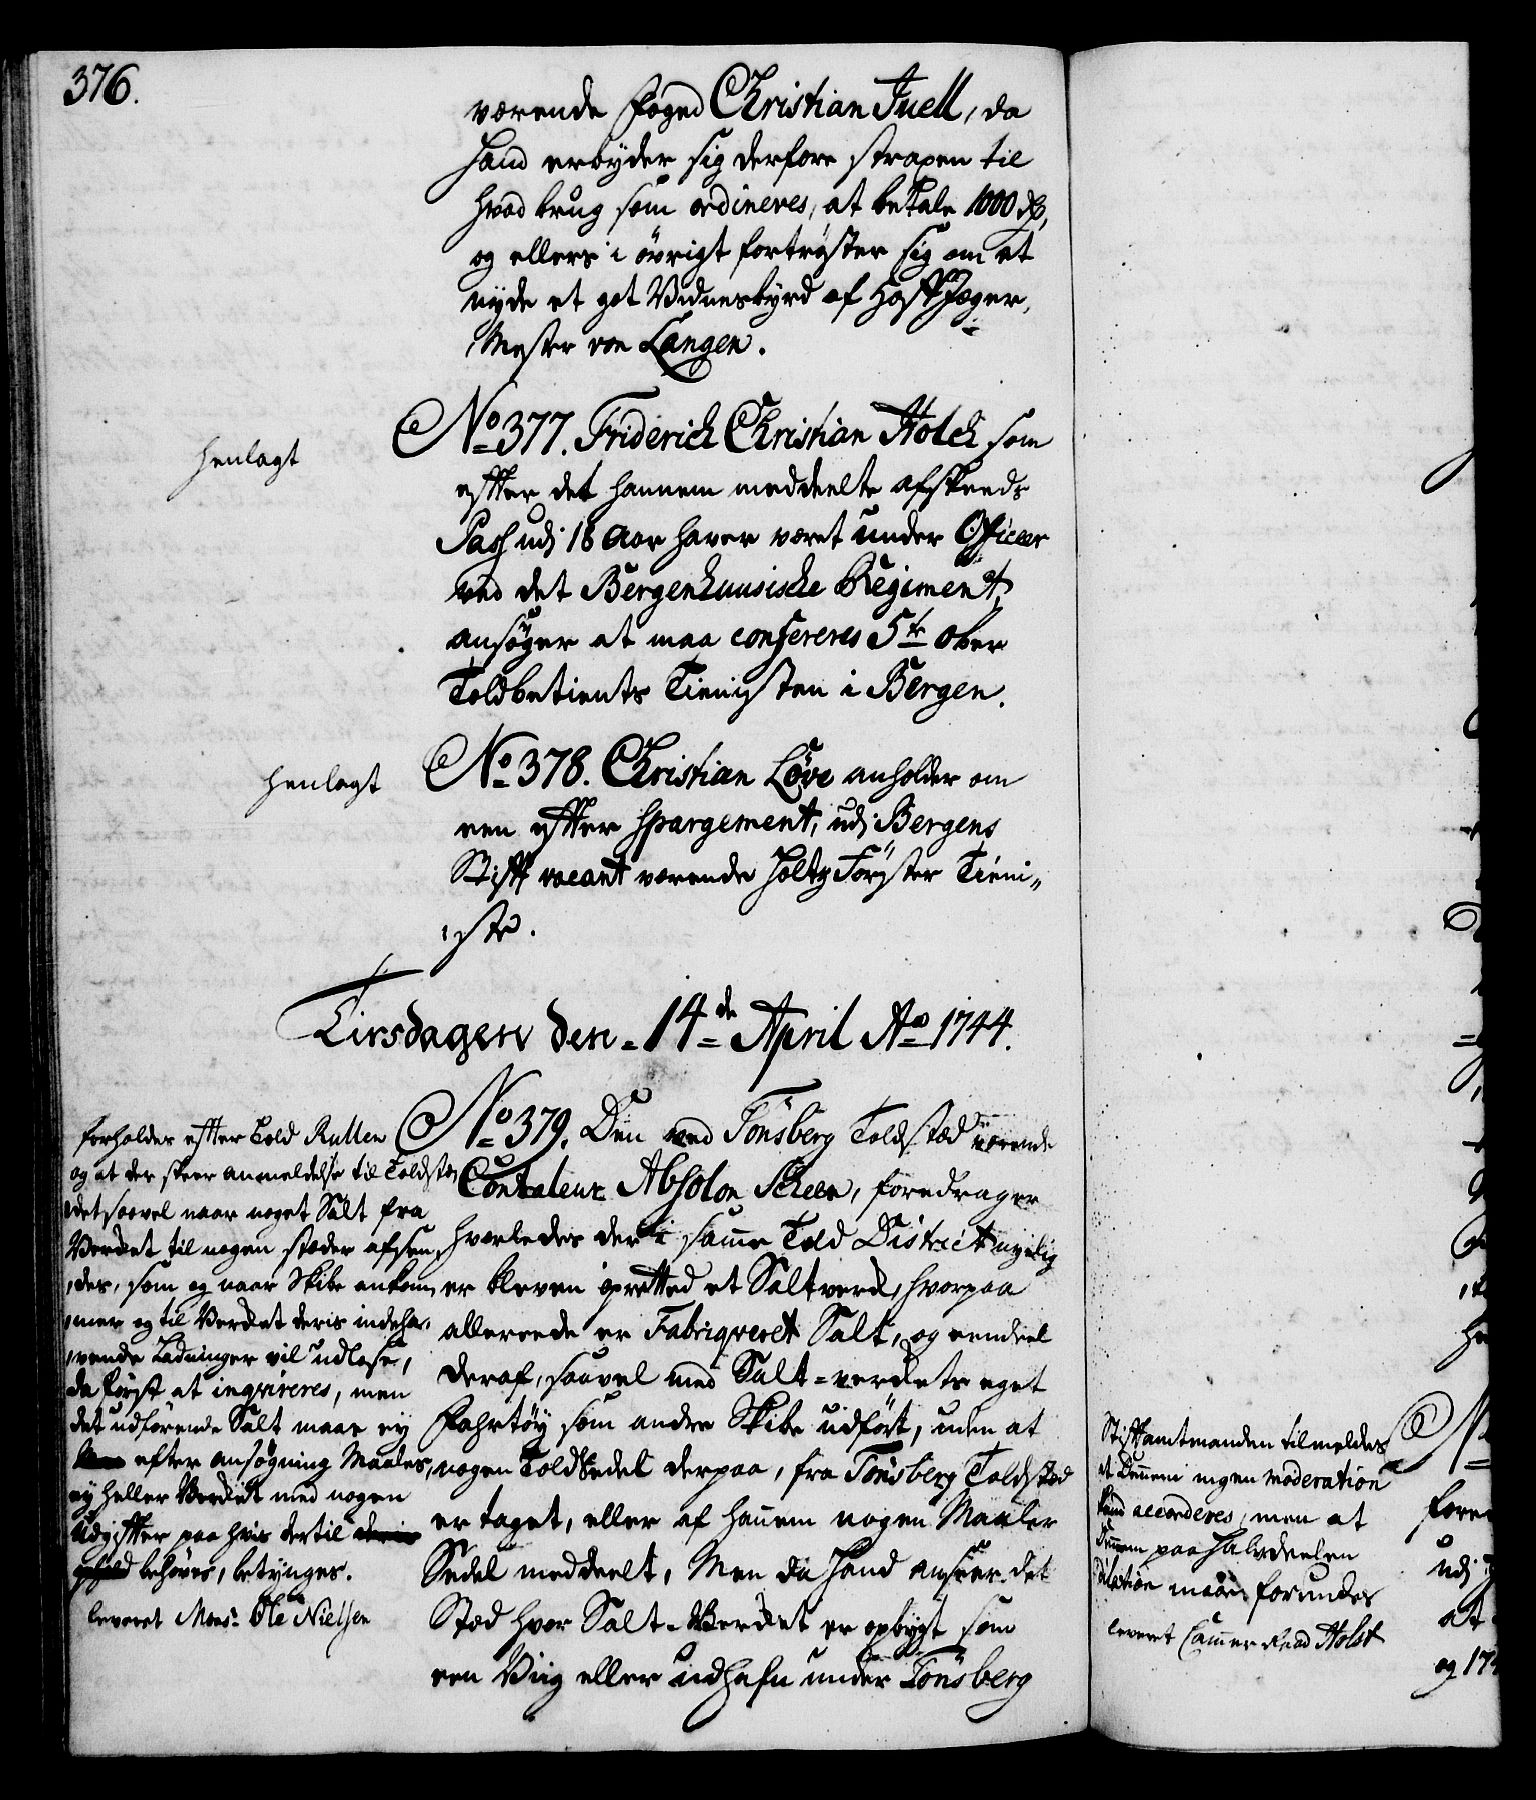 376.
værende Foged Christian Juell, da
Hand erbyder sig derfore straxen til
hvad brug som ordineres, at betale 1000 rdr,
og ellers i øvrigt fortrøster sig om at
nyde et got Vidnesbyrd af HoffJæger,
Mester von Langen.
henlagt
No 377. Friderich Christian Holck som
efter det hannem meddeelte afskeeds
Pass udj 18 Aar haver været under Officeer
ved det Bergenhuusiske Regiment,
ansøger at maa confereres 5te Ober
Toldbetients Tienisten i Bergen.
henlagt
No 378. Christian Löve anholder om
een efter spargement, udj Bergens
Stift vacant værende Holtz Førster Tieni„
„ste.
Tirsdagen den 14de April Ao 1744.
forholder efter Told Rullen
og at der skeer anmeldelse til Toldstæ„
det saavel naar noget Salt fra
Verket til nogen stæder afsen„
„des, som og naar Skibe ankom„
„mer og til Verket deris indeha„
„vende Ladninger vil udlose,
da först at inqvireres, men
det udförende Salt maae ey
efter ansøgning Maales,
ey heller Verket med nogen
Udgifter paa hvis dertil
behøves, betynges.
leveret Monsr. Ole Nielsen
No 379. Den ved Tönsberg Toldsted nu værende
Contraleur Absolon Scheen, foredrager
hvorledes der i samme Told District nyelig
er bleven opretted et Saltverck, hvorpaa
allereede er Fabriqveret Salt, og eendeel
deraf, saavel med Salt-verckets eget
Fahrtöy som andre Skibe udfört, uden at
nogen Toldsedel derpaa, fra Tönsberg Toldsted
er taget, eller af hannem nogen Maaler
Sedel meddeelt, Men da Hand anseer det
Sted hvor Salt-Verket er opbygt som
een Viig eller udhafn under Tönsberg
Stiftamtmanden tilmeldes
at Dennem ingen moderation
kand accorderes, men at
Dennem paa Halvdeelen
dilation maae forundes
leveret Cammer Raad Holst
fore
udj
at
og 174